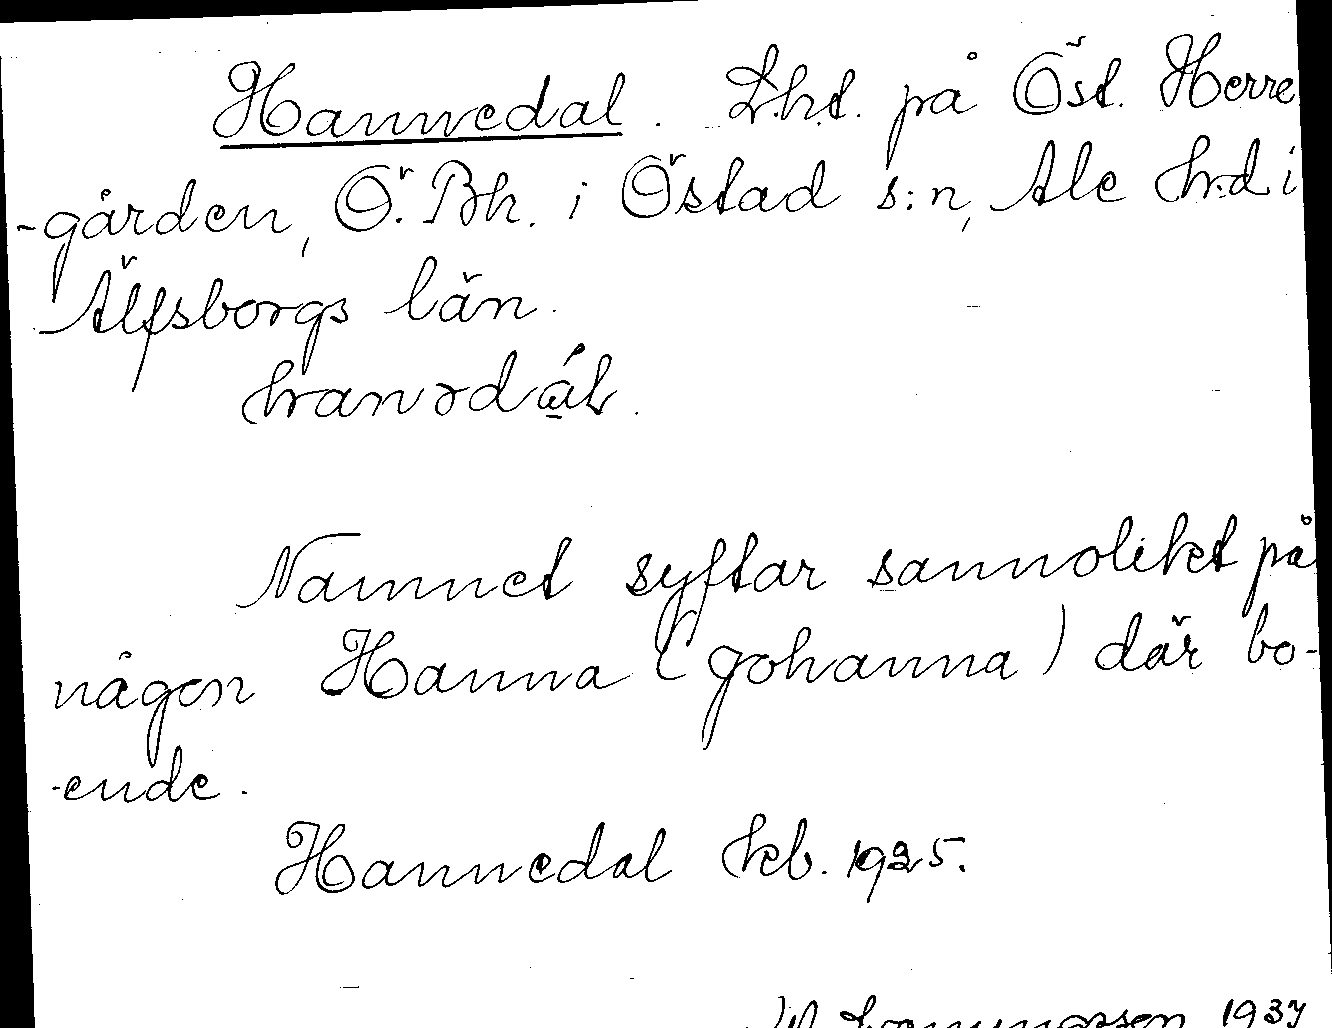 Hannedal. Lht. på Öst. Herre
-gården, Ö. Bh. i Östad s:n, Ale h:d i
Älfsborgs län.
hanədáɫ.
Namnet syftar sannolikt på
någon Hanna (Johanna) där bo-
-ende.
Hannedal kb. 1925.
1937